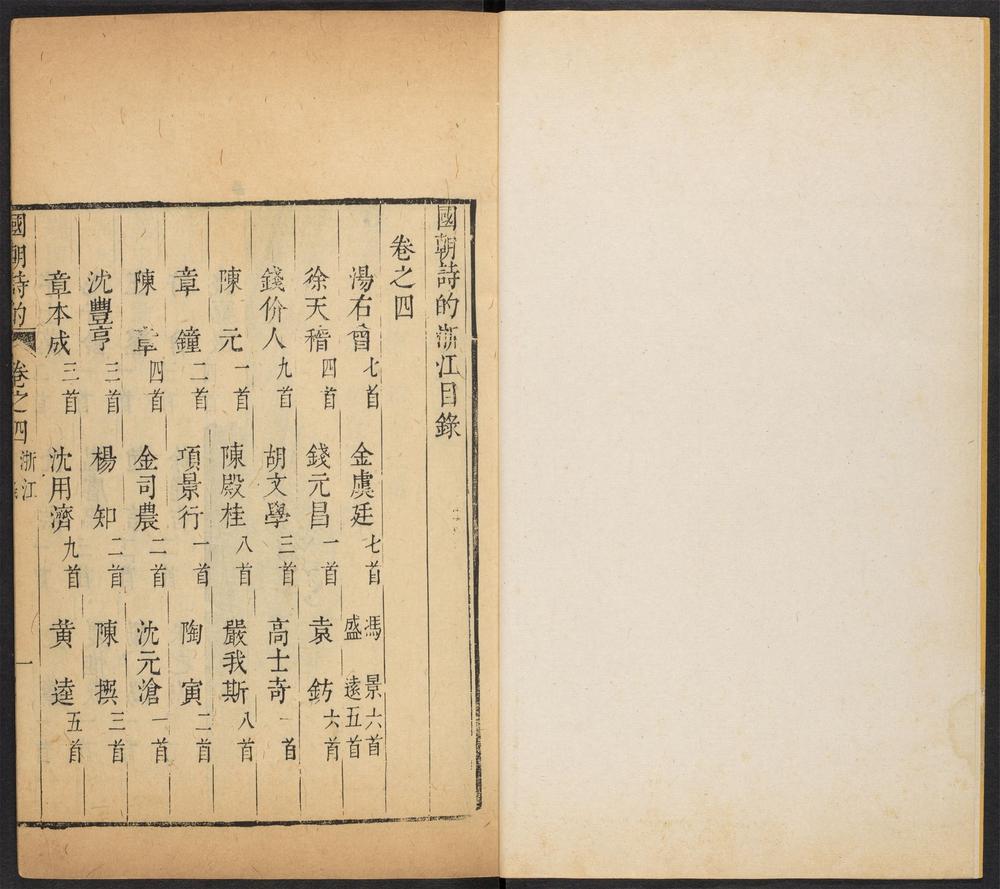 國朝詩的浙江目錄
卷之四
湯右曾 七首 金虞廷 七首 馮景 六首 盛遠 五首
徐天稽 四首 錢元昌 一首 袁鈁 六首
錢价人 九首 胡文學 三首 高士奇 一首
陳元 一首 陳殿桂 八首 嚴我斯 八首
章鐘 二首 項景行 一首 陶寅 二首
陳章 四首 金司農 二首 沈元滄 一首
沈豐亨 三首 楊知 二首 陳撰 三首
章本成 三首 沈用濟 九首 黃逵 五首
國朝詩的 卷之四 浙江 一